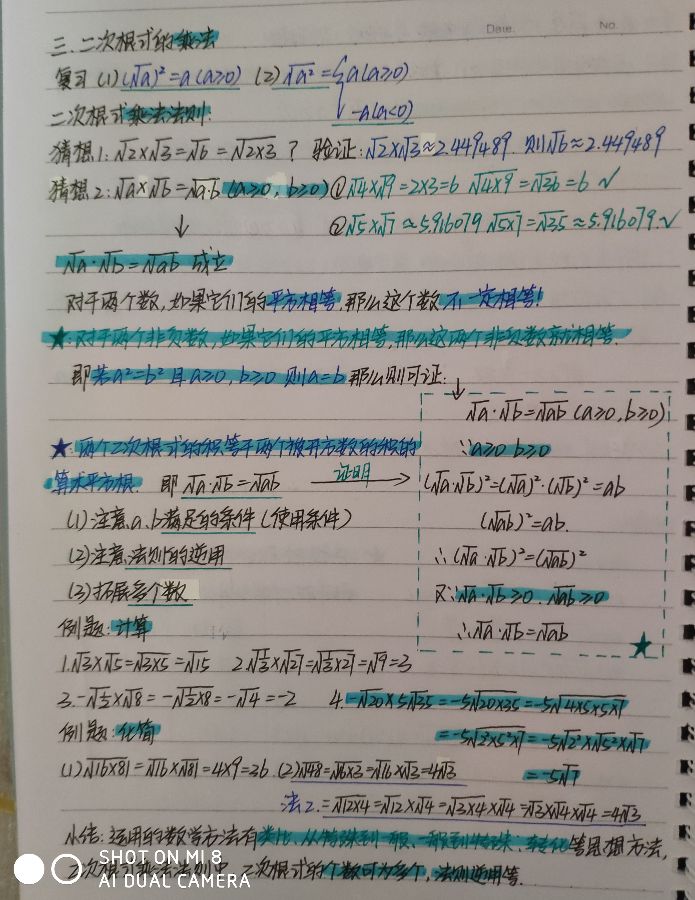 Date. No.
三.二次根式的乘法
复习(1)(√a)²=a(a≥0) (2)√a²={a(a≥0)
-a(a<0)
二次根式乘法法则:
猜想1:√2×√3=√6=√2×3? 验证:√2×√3≈2.449489.则√6≈2.449489
猜想2:√a×√b=√a·b(a≥0,b≥0)①√4×√9=2×3=6 √4×9=√36=6√
↓ ②√5×√7≈5.916079 √5×7=√35≈5.916079.√
√a·√b=√ab 成立
对于两个数,如果它们的平方相等,那么这个数不一定相等!
★:对于两个非负数,如果它们的平方相等,那么这两个非负数就相等.
即若a²=b²且a≥0,b≥0则a=b那么则可证:↓
√a·√b=√ab(a≥0,b≥0)
∵a≥0 b≥0
(√a·√b)²=(√a)²·(√b)²=ab
(√ab)²=ab.
∴(√a·√b)²=(√ab)²
又∵√a·√b≥0.√ab≥0
∴√a·√b=√ab
★
★:两个二次根式的积等于两个被开方数的积的
算术平方根. 即√a·√b=√ab 证明→
(1)注意a、b满足的条件(使用条件)
(2)注意法则的逆用
(3)拓展多个数
例题:计算
1.√3×√5=√3×5=√15 2.√⅓×√27=√⅓×27=√9=3
3.-√½×√8=-√½×8=-√4=-2 4.-√20×5√35=-5√20×35=-5√4×5×5×7
=-5√2²×5²×7=-5√2²×√5²×√7
=-5√7
例题:化简
(1)√16×81=√16×√81=4×9=36.(2)√48=√16×3=√16×√3=4√3
法2.=√12×4=√12×√4=√3×4×√4=√3×√4×√4=4√3
小结:运用的数学方法有类比、从特殊到一般、一般到特殊、转化等思想方法,
二次根式乘法法则中,二次根式的个数可为多个,法则逆用等.
SHOT ON MI 8
AI DUAL CAMERA